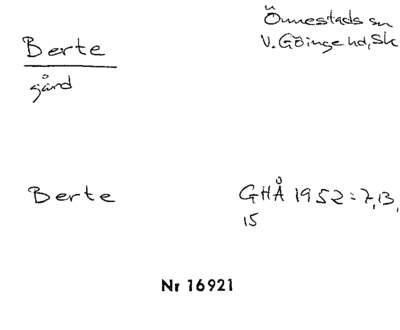 Berte
gård
Önnestads sn
V. Göinge hd, Sk
Berte
GHÅ 1952:7,13,
15
Nr 16921